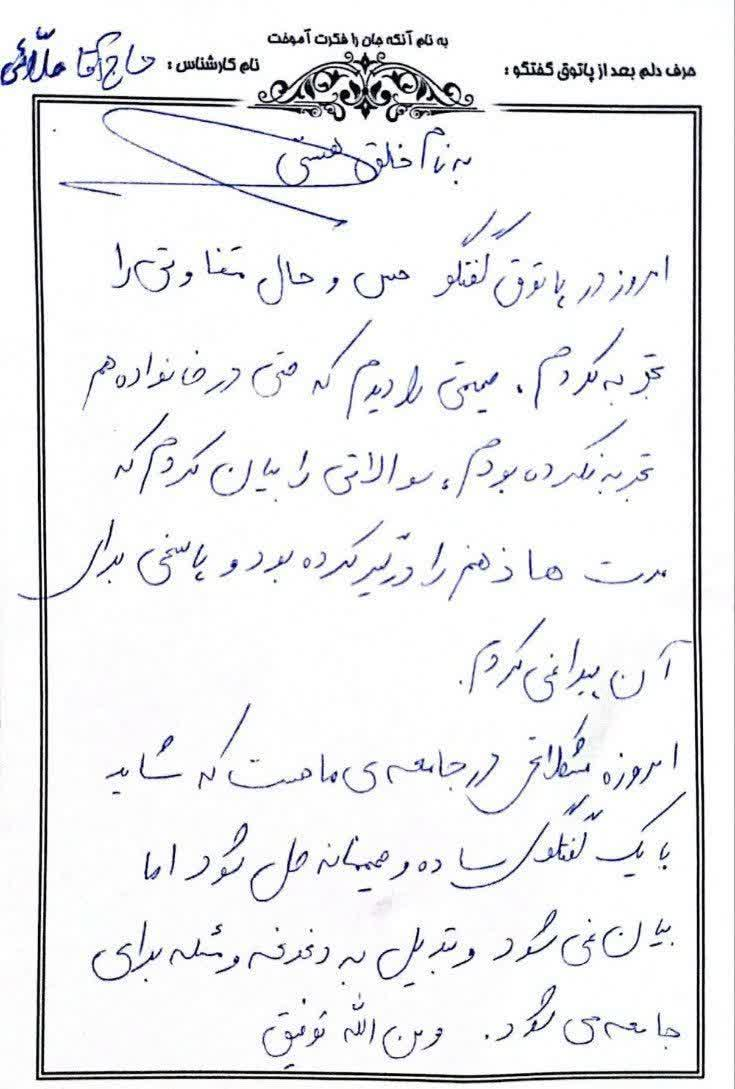 به نام آنکه جان را فکرت آموخت
حرف دلم بعد از پاتوق گفتگو :
نام کارشناس : حاج آقا ملائی
به نام خالق هستی
امروز در پاتوق گفتگو حس و حال متفاوتی را
تجربه کردم ، صمیمتی را دیدم که حتی در خانواده هم
تجربه نکرده بودم ، سوالاتی را بیان کردم که
مدت ها ذهنم را درگیر کرده بود و پاسخی برای
آن پیدا نمی کردم .
امروزه مشکلاتی در جامعه ی ما هست که شاید
با یک گفتگوی ساده و صمیمانه حل شود اما
بیان نمی شود و تبدیل به دغدغه و مسئله برای
جامعه می شود . و من الله توفیق